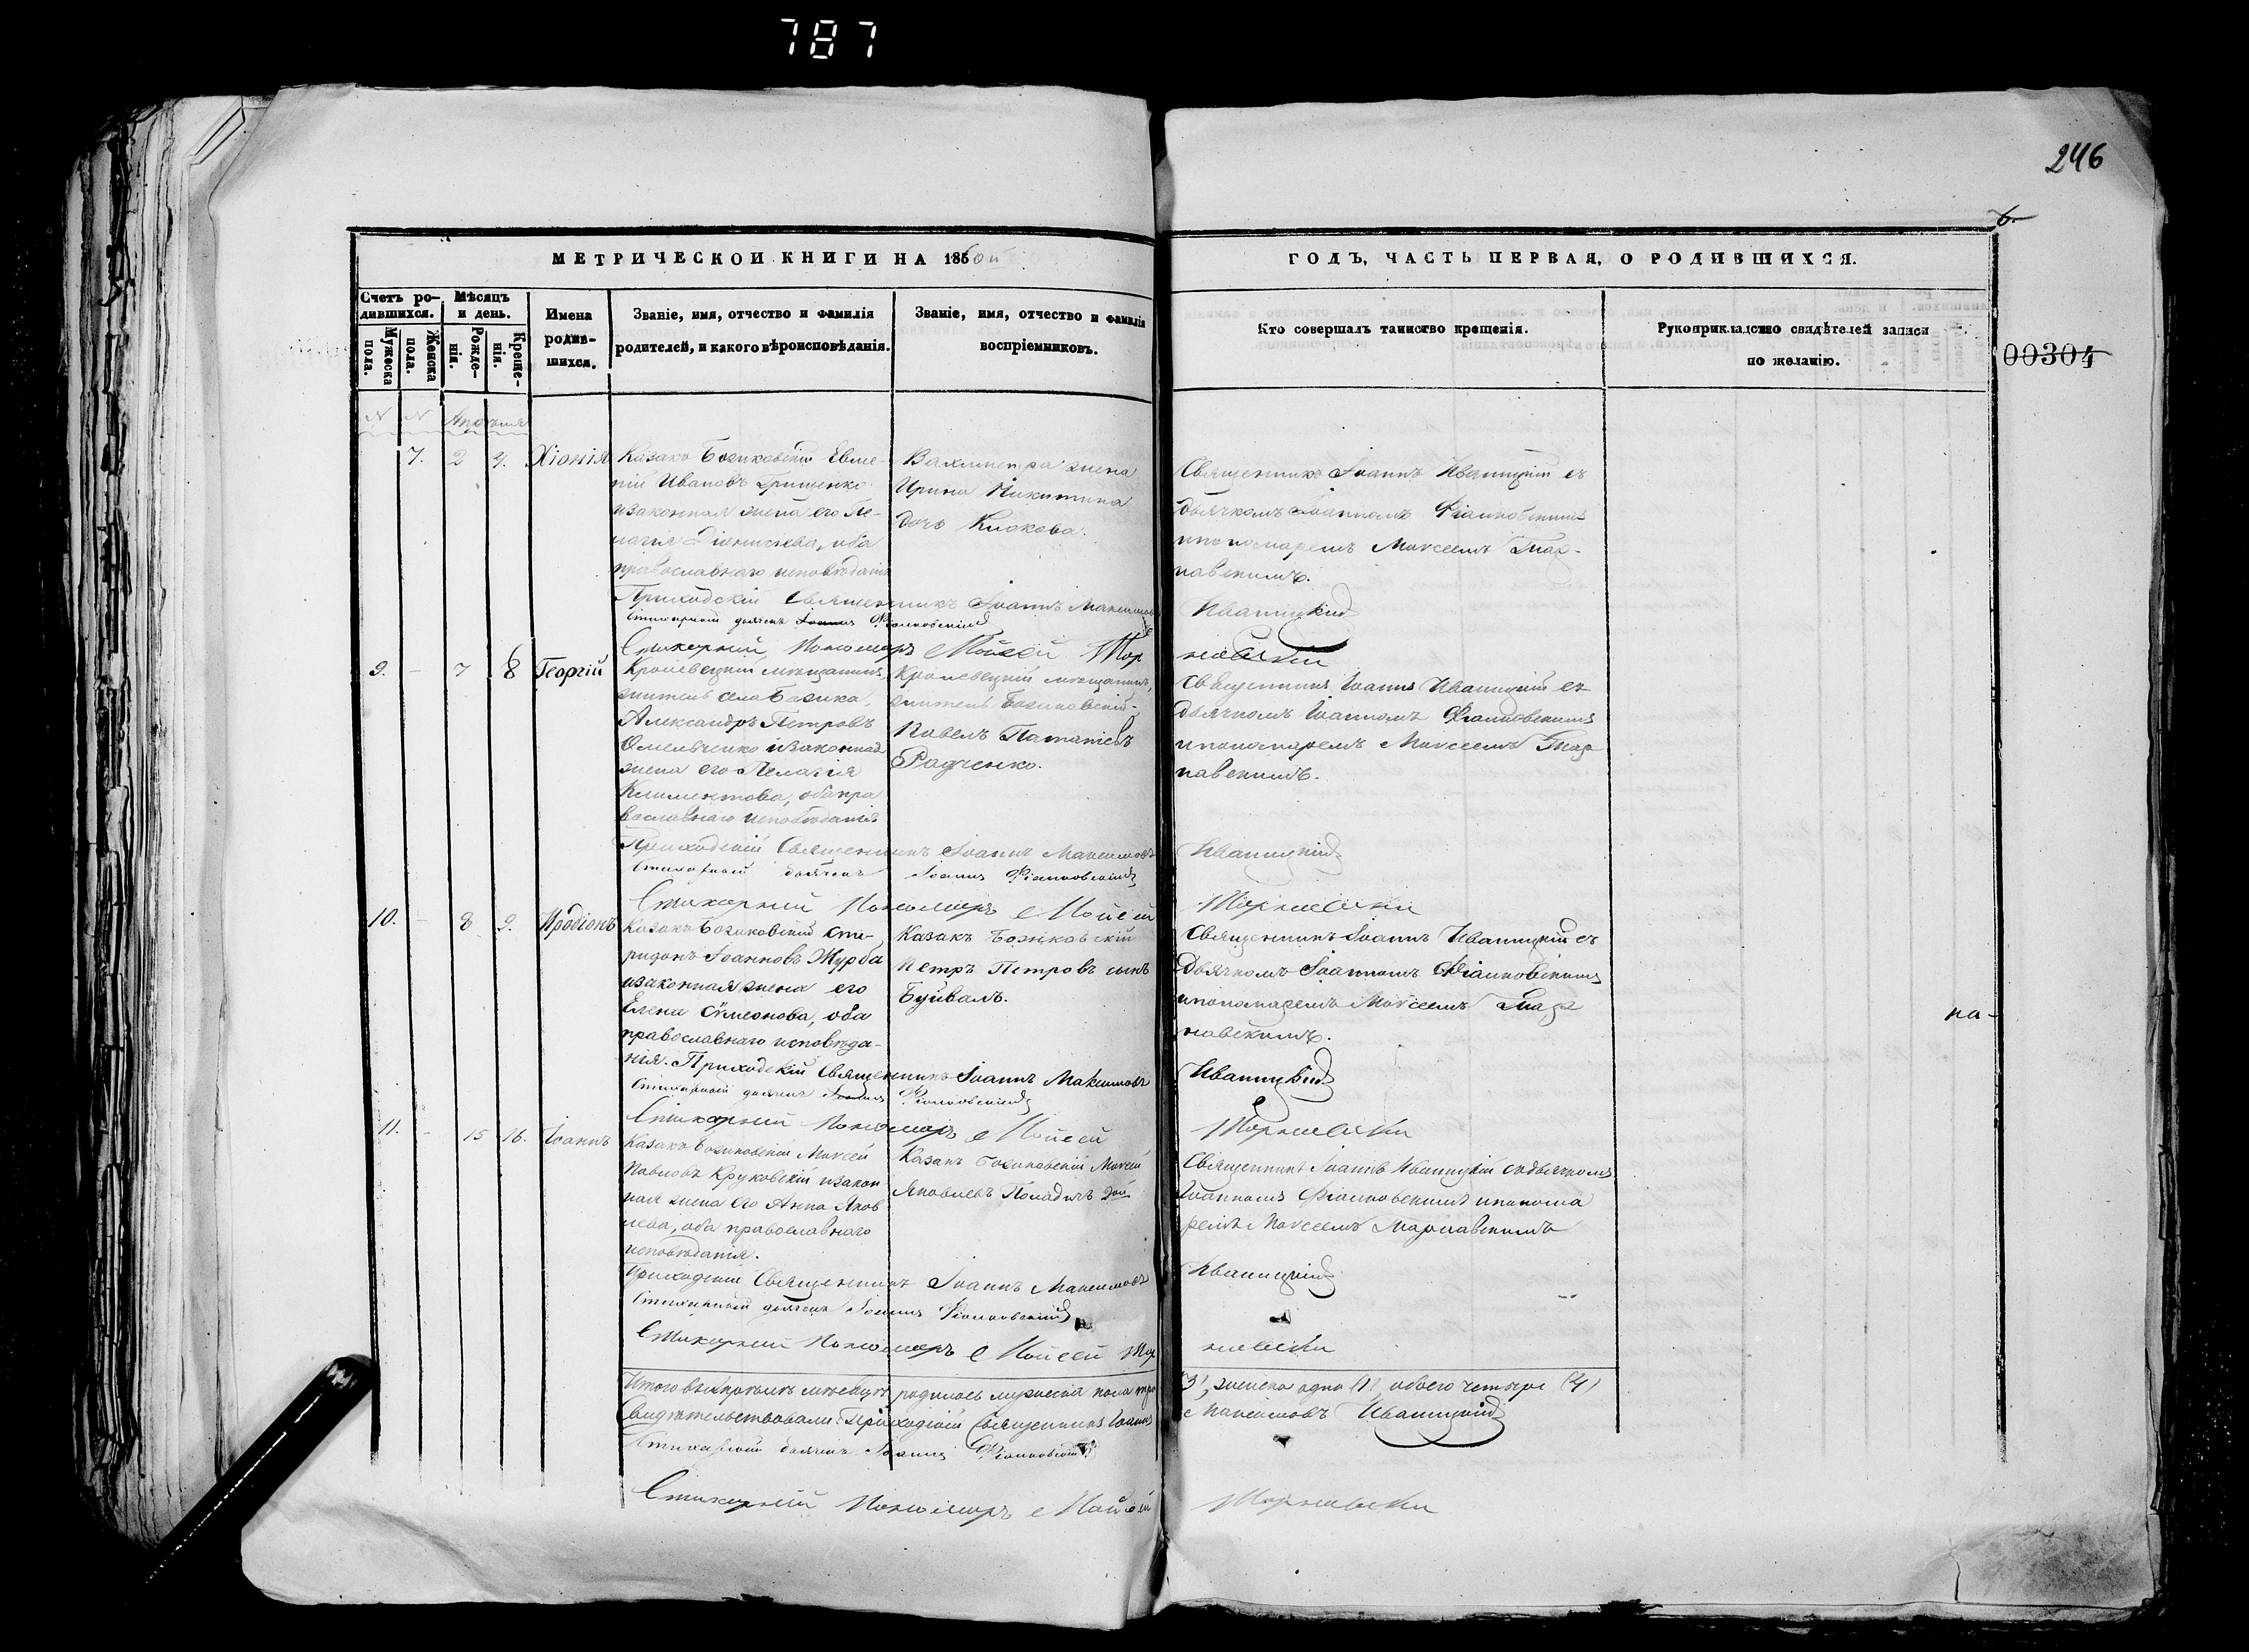 787
246
6.
МЕТРИЧЕСКОЙ КНИГИ НА 1860й
ГОДЪ, ЧАСТЬ ПЕРВАЯ, О РОДИВШИХСЯ.
Счетъ ро-
дившихся.
Мужеска пола.
Женска пола.
Мѣсяцъ
и день.
Рожде-
нія.
Креще-
нія.
Имена
родив-
шихся.
Званіе, имя, отчество и фамилія
родителей, и какого вѣроисповѣданія.
Званіе, имя, отчество и фамилія
воспріемниковъ.
Кто совершалъ таинство крещенія.
Рукоприкладство свидѣтелей записи
по желанію.
00304
N N Апрѣля
7. 2 4. Хіонія
Казакъ Божковскій Евме-
ній Ивановъ Грищенко
и законная жена его Пе-
лагія Діонисіева, оба
православнаго исповѣданія
Вахмистра жена
Ирина Никитина
дочь Клокова.
Священникъ Іоаннъ Иваницкій съ
дьячкомъ Іоанномъ Фіалковскимъ
и пономаремъ Моѵсеемъ Тар-
навскимъ.
Приходскій Священникъ Іоаннъ Максимовъ Иваницкій
Стихарный дьячекъ Іоаннъ Фіалковскій
Стихарний Пономарь Мойсей Тар навски
9. - 7 8 Георгій
Кролевецкій мѣщанинъ,
житель села Божка,
Александръ Петровъ
Омельченко и законная
жена его Пелагія
Климентова, оба пра
вославнаго исповѣданія.
Кролевецкій мѣщанинъ,
житель Божковскій
Павелъ Ипатіевъ
Радченко.
Священникъ Іоаннъ Иваницкій съ
дьячкомъ Іоанномъ Фіалковскимъ
и пономаремъ Моѵсеемъ Тар
навскимъ.
Приходскій Священникъ Іоаннъ Максимовъ Иваницкій
Стихарный дьячекъ Іоаннъ Фіалковскій
Стихарний Пономарь Мойсей Тарнавски
10. - 8 9. Иродіонъ
Казакъ Божковскій Спи-
ридонъ Іоанновъ Журба
и законная жена его
Елена Сѵмеонова, оба
православнаго исповѣда-
нія.
Казакъ Божковскій
Петръ Петровъ сынъ
Буйвалъ.
Священникъ Іоаннъ Иваницкій съ
дьячкомъ Іоанномъ Фіалковскимъ
и пономаремъ Моѵсеемъ Тар
навскимъ.
на-
Приходскій Священникъ Іоаннъ Максимовъ Иваницкій
Стихарный дьячекъ Іоаннъ Фіалковскій
Стихарний Пономарь Мойсей Тарнавски
11. - 15 16. Іоаннъ
Казакъ Божковскій Моѵсей
Павловъ Круковскій и закон
ная жена его Анна Яков
лева, оба православнаго
исповѣданія.
Казакъ Божковскій Моѵсей
Яковлевъ
Священникъ Іоаннъ Иваницкій съ дьячкомъ
Іоанномъ Фіалковскимъ и понома
ремъ Моѵсеемъ Тарнавскимъ
Приходскій Священникъ Іоаннъ Максимовъ Иваницкій
Стихарный дьячекъ Іоаннъ Фіалковскій
Стихарний Пономарь Мойсей Тар навски
Итого въ Апрѣлѣ мѣсяцѣ родилось мужеска пола три (3), женска одна (1), обоего четыре (4)
Свидѣтельствовали: Приходскій Священникъ Іоаннъ Максимовъ Иваницкій
Стихарный дьячекъ Іоаннъ Фіалковскій
Стихарний Пономарь Мойсей Тарнавски